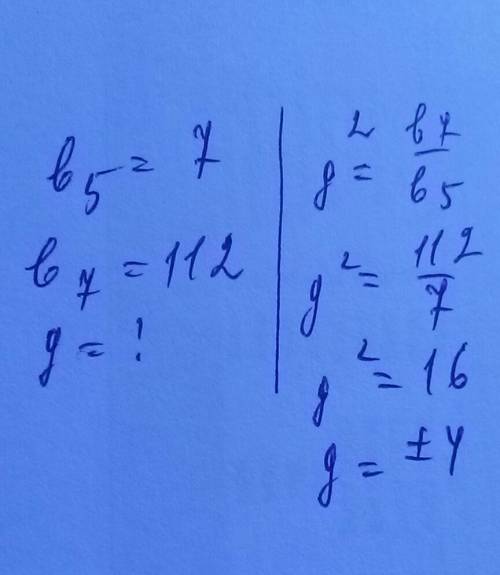 b₅ = 7
b₇ = 112
q = ?
q² = b₇/b₅
q² = 112/7
q² = 16
q = ±4